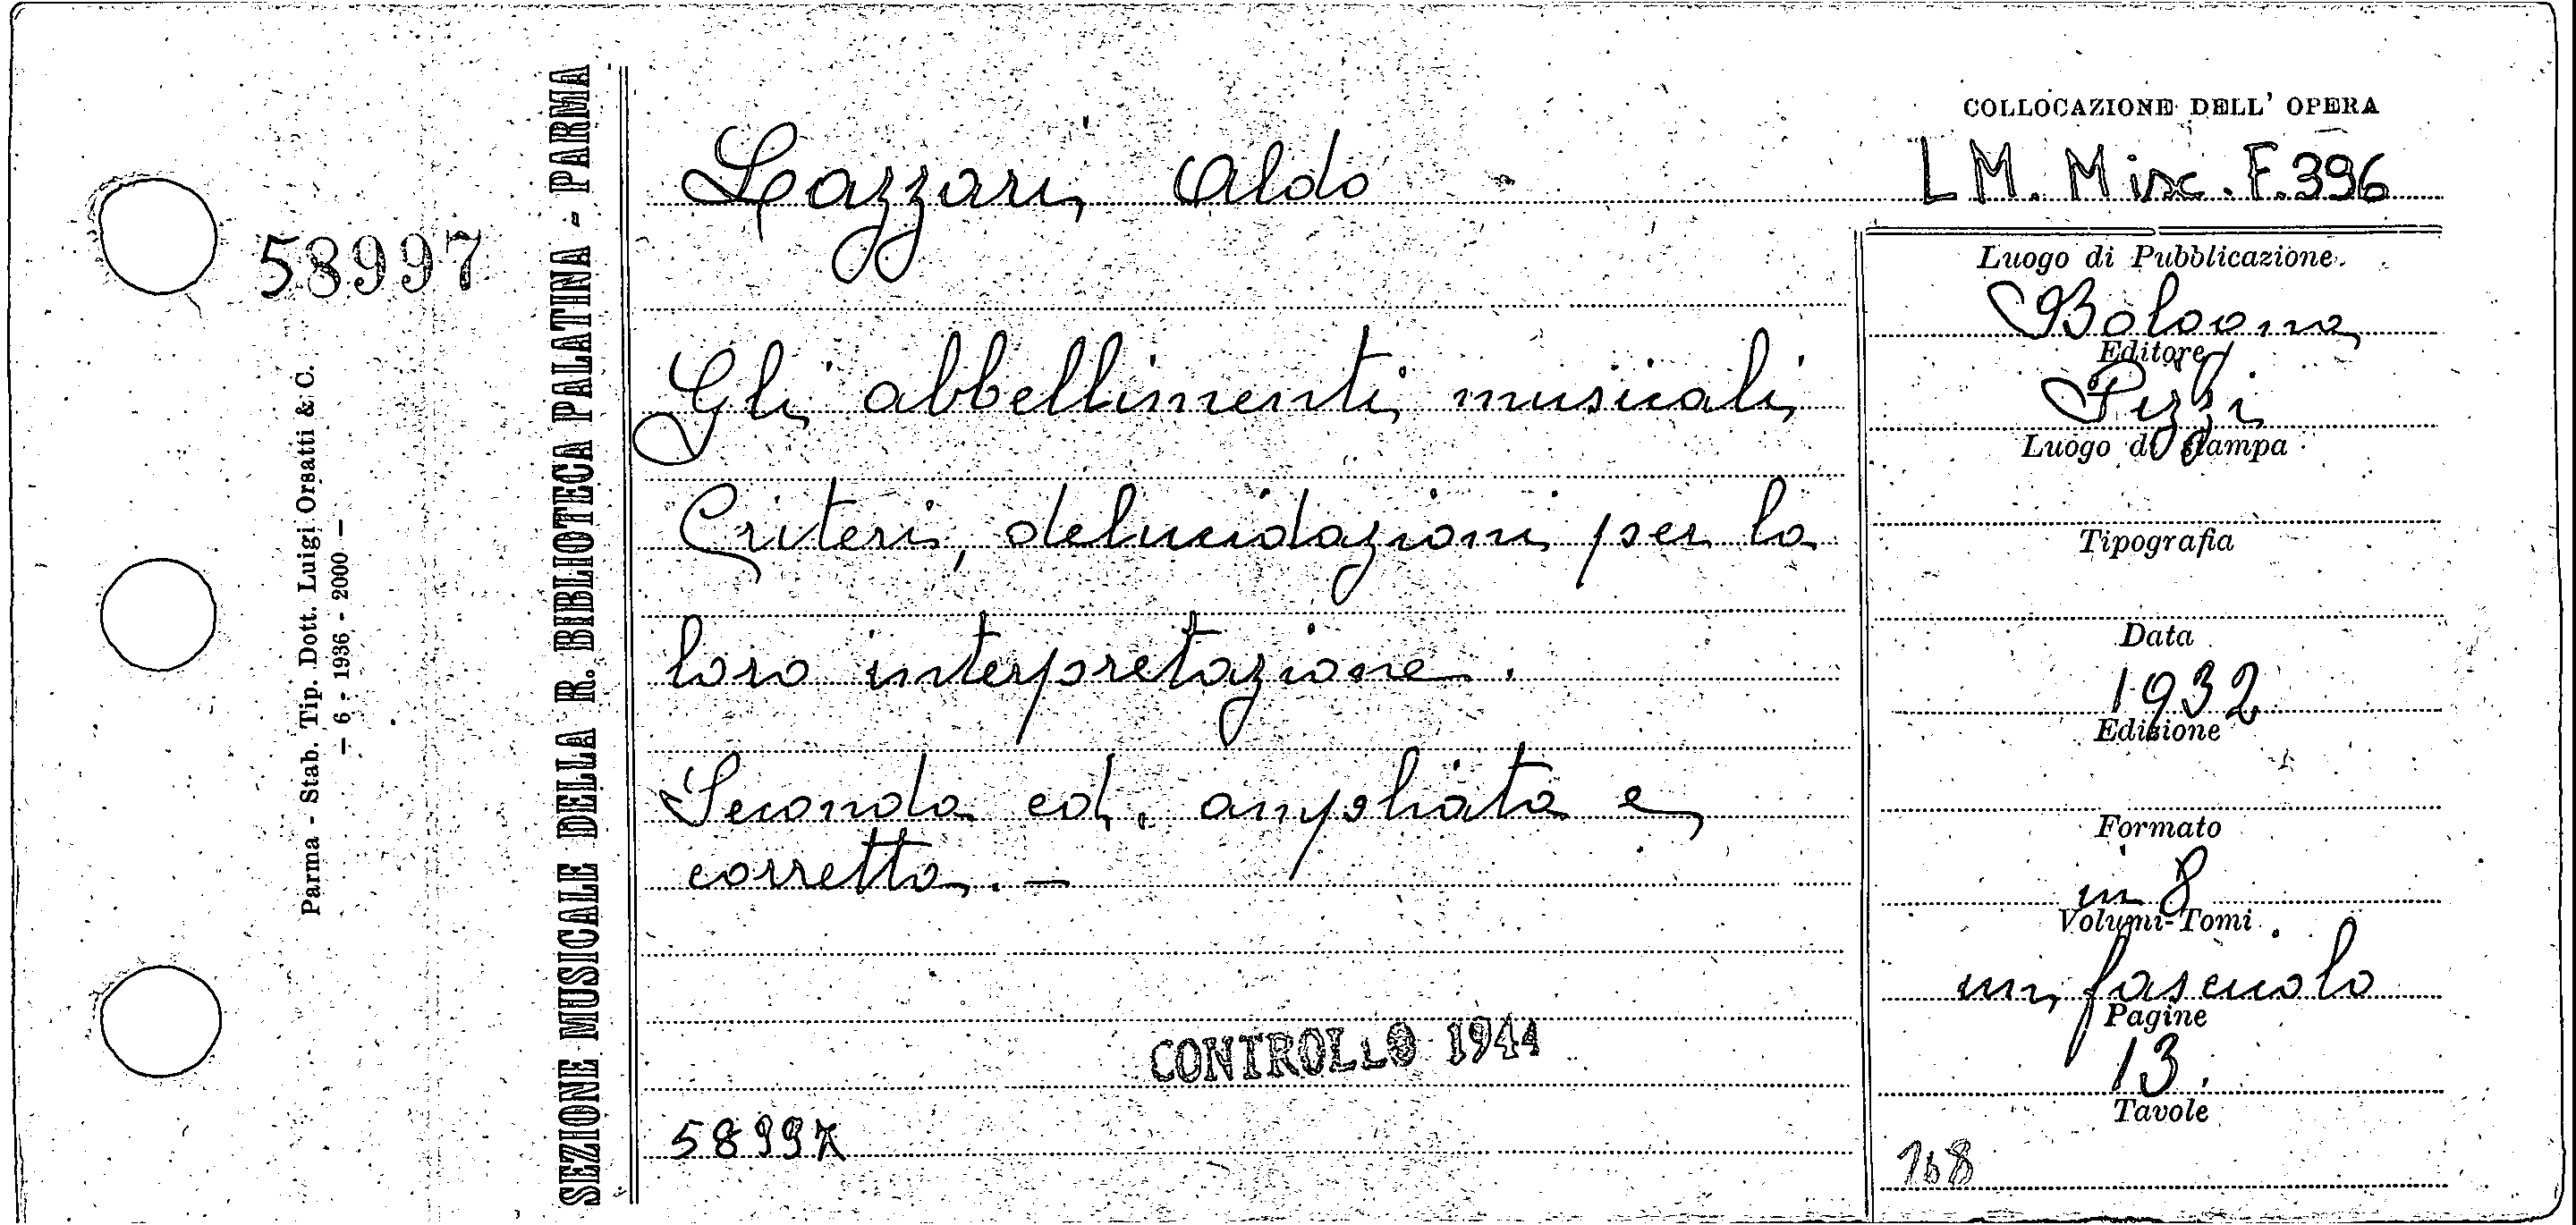 COLLOCAZIONE DELL' OPERA
Lazzari, Aldo
LM. Misc. F. 396
58997
Luogo di Pubblicazione.
Bologna
Gli abbellimenti musicali
Editore
Pizzi
Luogo di Stampa
Criteri, delucidazioni per la
Tipografia
loro interpretazione.
Data
1932
Edizione
Seconda ed. ampliata e
corretta. -
Formato
in 8
Volumi-Tomi
un fascicolo
Pagine
13.
CONTROLLO 1944
Tavole
58997
168
SEZIONE MUSICALE DELLA R. BIBLIOTECA PALATINA - PARMA
Parma - Stab. Tip. Dott. Luigi Orsatti & C.
- 6 - 1936 - 2000 -